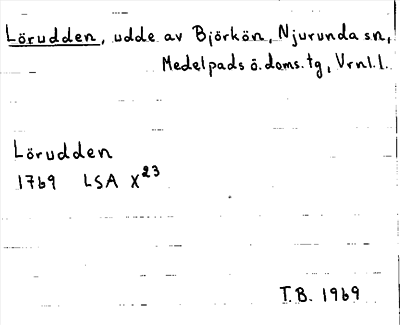 Lörudden, udde av Björkön, Njurunda sn,
Medelpads ö. doms. tg, Vrnl. l.
Lörudden
1769 LSA X²³
T.B. 1969